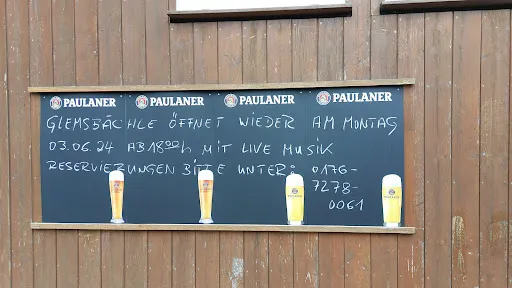 PAULANER PAULANER PAULANER PAULANER
GLEMSBÄCHLE ÖFFNET WIEDER AM MONTAG
03.06.24 AB 18ººh MIT LIVE MUSIK
RESERVIERUNGEN BITTE UNTER: 0176-
7278-
0061